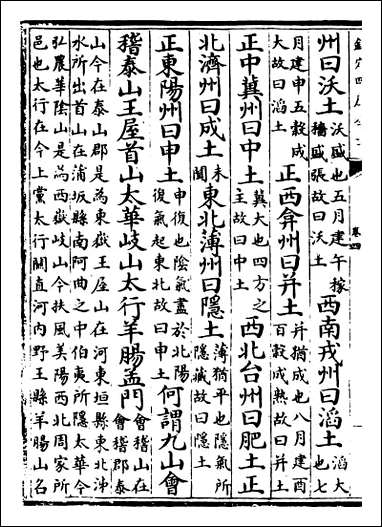 欽定四庫全書
卷四
州曰沃土沃盛也五月建午稼穡盛張故曰沃土西南戎州曰滔土滔大也七
月建申五穀成大故曰滔土正西弇州曰并土并猶成也八月建酉百穀成熟故曰并土
正中冀州曰中土冀大也四方之主故曰中土西北台州曰肥土正
北濟州曰成土未聞東北薄州曰隱土薄猶平也隱氣所隱藏故曰隱土
正東陽州曰申土申復也陰氣盡於北陽復氣起東北故曰申土何謂九山會
稽泰山王屋首山太華岐山太行羊腸孟門會稽山在會稽郡泰
山今在泰山郡是為東嶽王屋山在河東垣縣東北沛
水所出首山在蒲坂縣南河曲之中伯夷所隱太華今
弘農華陰山是為西嶽岐山今扶風美陽西北周家所
邑也太行在今上黨太行關直河内野王縣羊腸山名